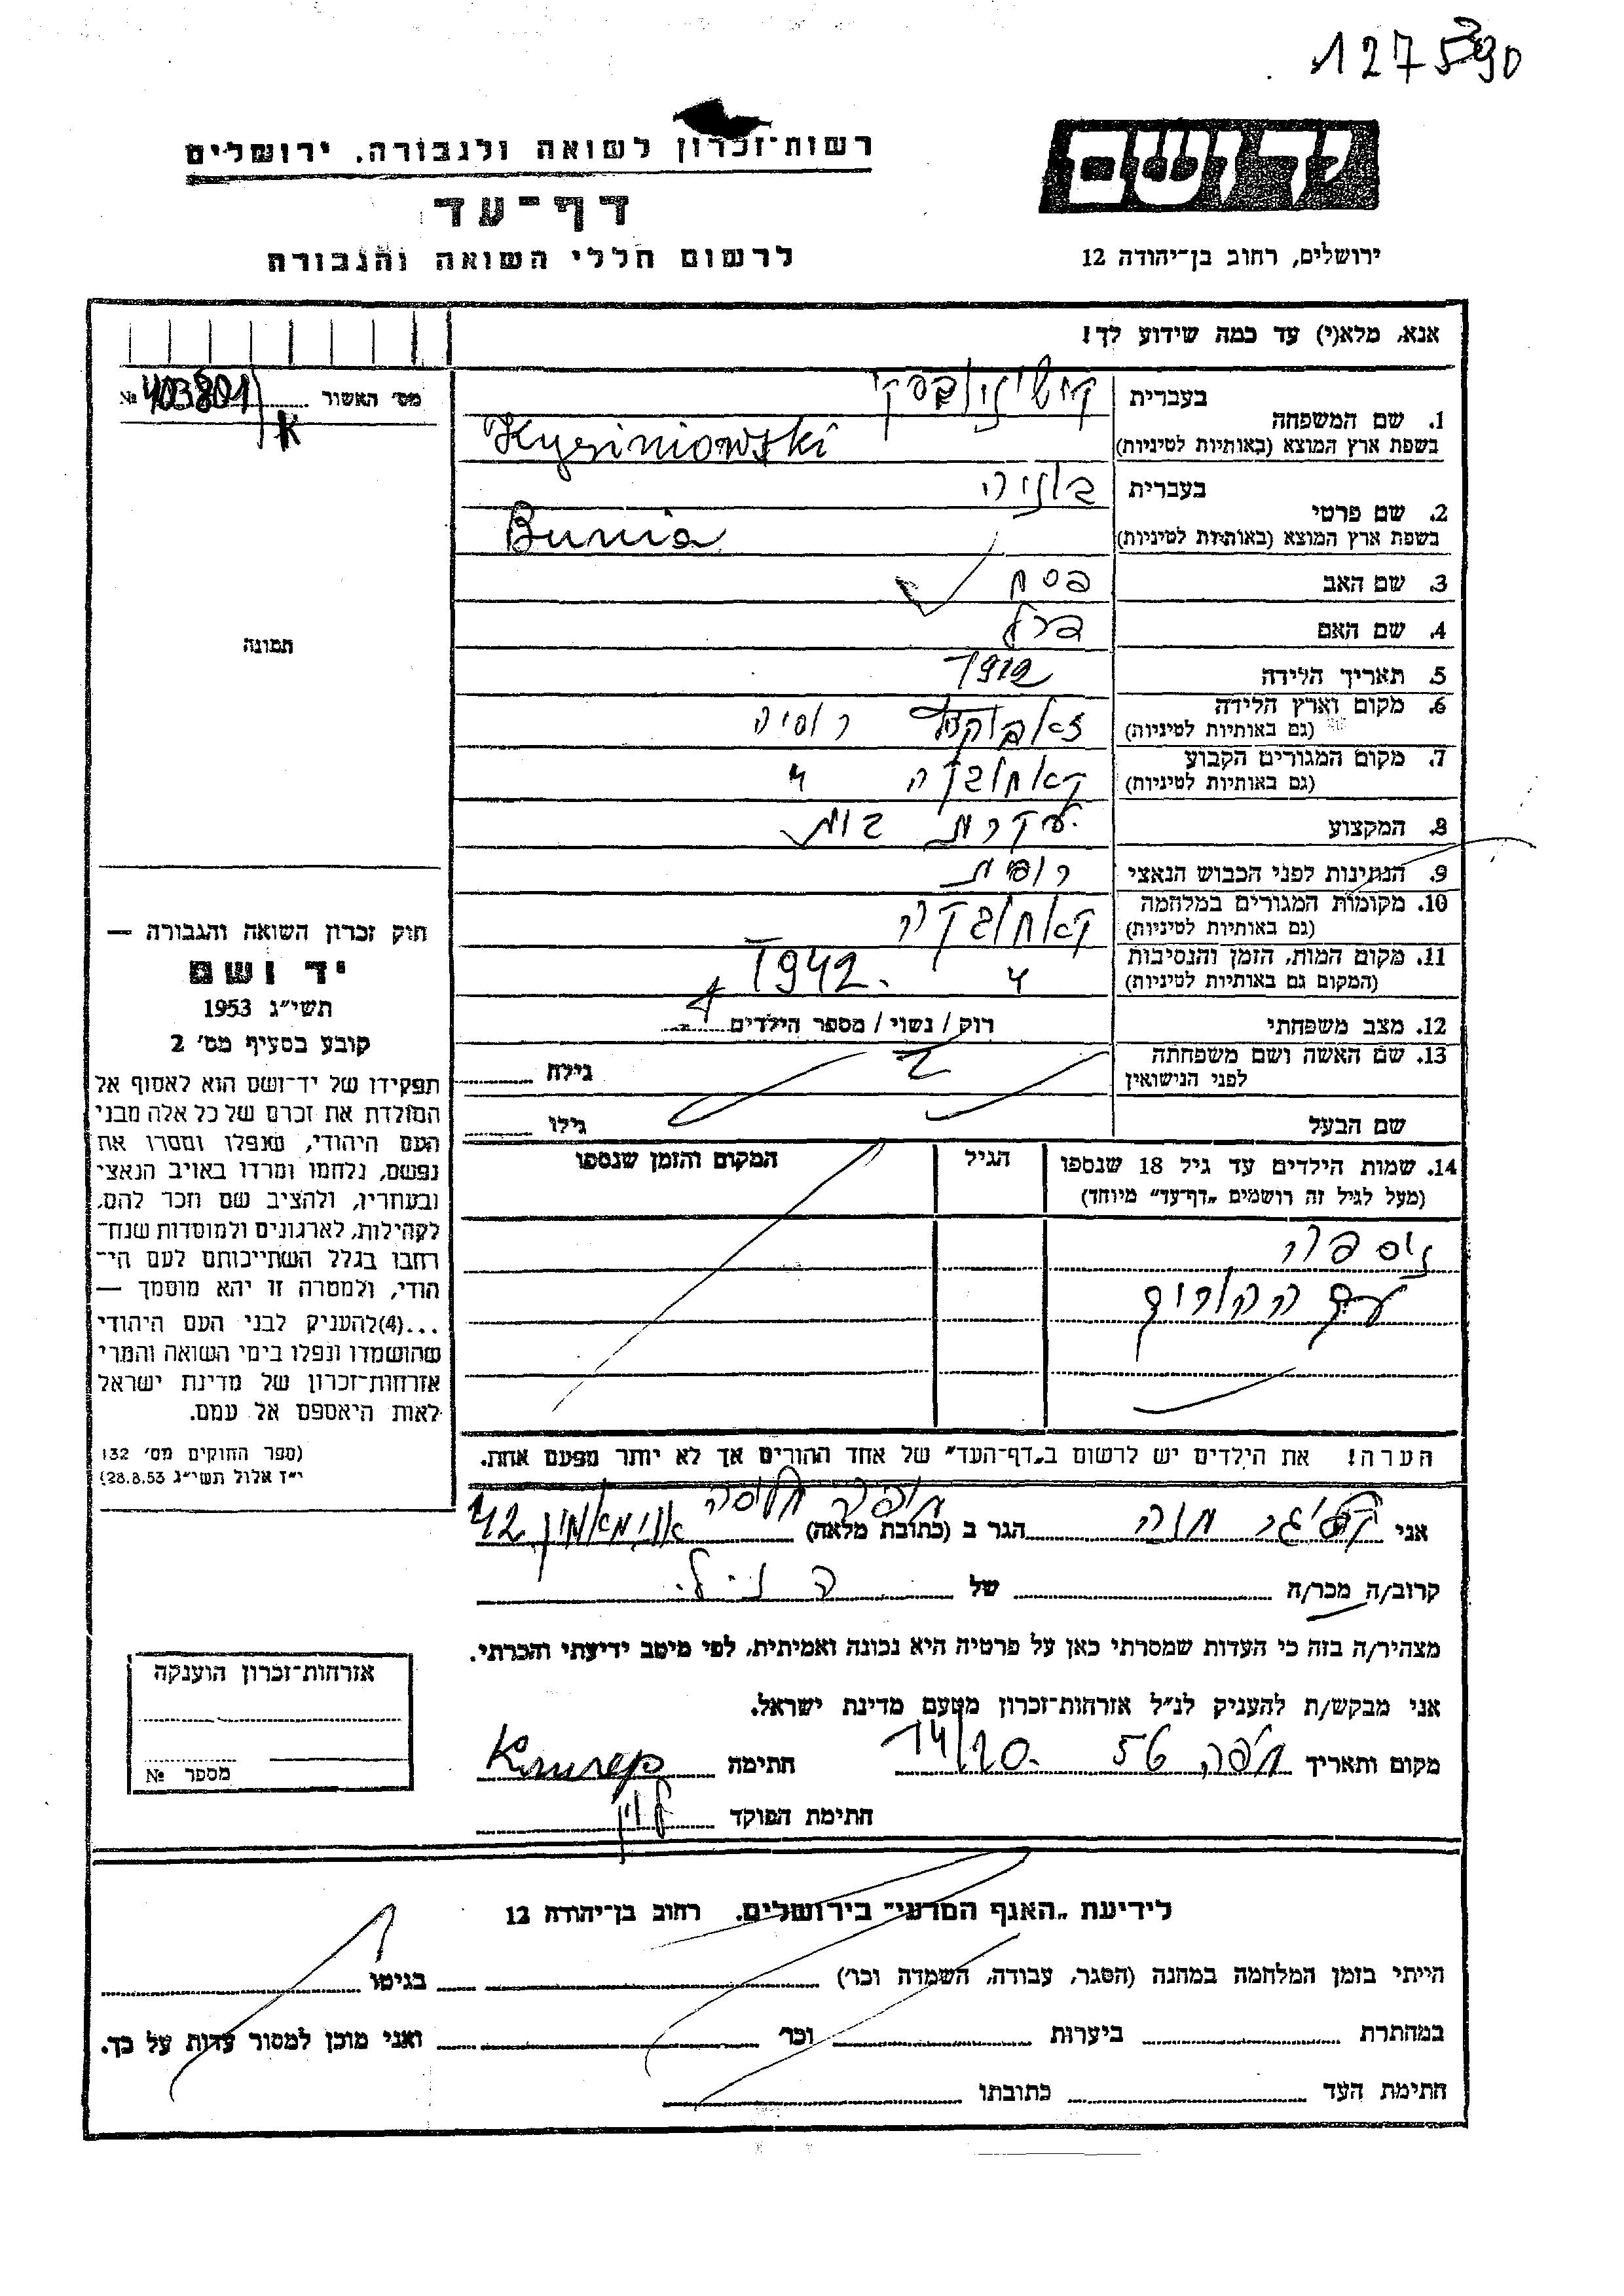 127590
רשות־זכרון לשואה ולגבורה. ירושלים
דף־עד
לרשום חללי השואה והגבורה
יד ושם
ירושלים, רחוב בן־יהודה 12
אנא, מלא(י) עד כמה שידוע לך!
מס׳ האשור № 403801
K
1. שם המשפחה
בעברית
בשפת ארץ המוצא (באותיות לטיניות) Kysiniowski
2. שם פרטי
בעברית בוניה
בשפת ארץ המוצא (באותיות לטיניות) Bunia
3. שם האב פסח
4. שם האם
5. תאריך הלידה 1912
6. מקום וארץ הלידה רוסיה
(גם באותיות לטיניות)
7. מקום המגורים הקבוע קאחובקה
(גם באותיות לטיניות)
8. המקצוע עקרת בית
9. הנתינות לפני הכבוש הנאצי רוסית
10. מקומות המגורים במלחמה קאחובקה
(גם באותיות לטיניות)
11. מקום המות, הזמן והנסיבות 1942
(המקום גם באותיות לטיניות)
12. מצב משפחתי רוק / נשוי / מספר הילדים
13. שם האשה ושם משפחתה
לפני הנישואין
גילה
שם הבעל
גילו
14. שמות הילדים עד גיל 18 שנספו
(מעל לגיל זה רושמים „דף־עד״ מיוחד)
הגיל
המקום והזמן שנספו
ניספה
עם ההורים
הערה! את הילדים יש לרשום ב„דף־העד״ של אחד ההורים אך לא יותר מפעם אחת.
תמונה
חוק זכרון השואה והגבורה —
יד ושם
תשי״ג 1953
קובע בסעיף מס׳ 2
תפקידו של יד־ושם הוא לאסוף אל
המולדת את זכרם של כל אלה מבני
העם היהודי, שנפלו ומסרו את
נפשם, נלחמו ומרדו באויב הנאצי
ובעוזריו, ולהציב שם וזכר להם,
לקהילות, לארגונים ולמוסדות שנח־
רבו בגלל השתייכותם לעם הי־
הודי, ולמטרה זו יהא מוסמך —
...(4)להעניק לבני העם היהודי
שהושמדו ונפלו בימי השואה והמרי
אזרחות־זכרון של מדינת ישראל
לאות היאספם אל עמם.
(ספר החוקים מס׳ 132
י״ז אלול תשי״ג 28.8.53)
אני חוה הגר ב (כתובת מלאה) חיפה 42
קרוב/ה מכר/ה של הנ״ל
מצהיר/ה בזה כי העדות שמסרתי כאן על פרטיה היא נכונה ואמיתית, לפי מיטב ידיעתי והכרתי.
אני מבקש/ת להעניק לנ״ל אזרחות־זכרון מטעם מדינת ישראל.
מקום ותאריך חיפה חתימה
חתימת הפוקד לוין
אזרחות־זכרון הוענקה
מספר №
לידיעת „האגף המדעי״ בירושלים. רחוב בן־יהודה 12
הייתי בזמן המלחמה במחנה (הסגר, עבודה, השמדה וכו׳) בגיטו
במחתרת ביערות וכו׳ ואני מוכן למסור עדות על כך.
חתימת העד כתובתו